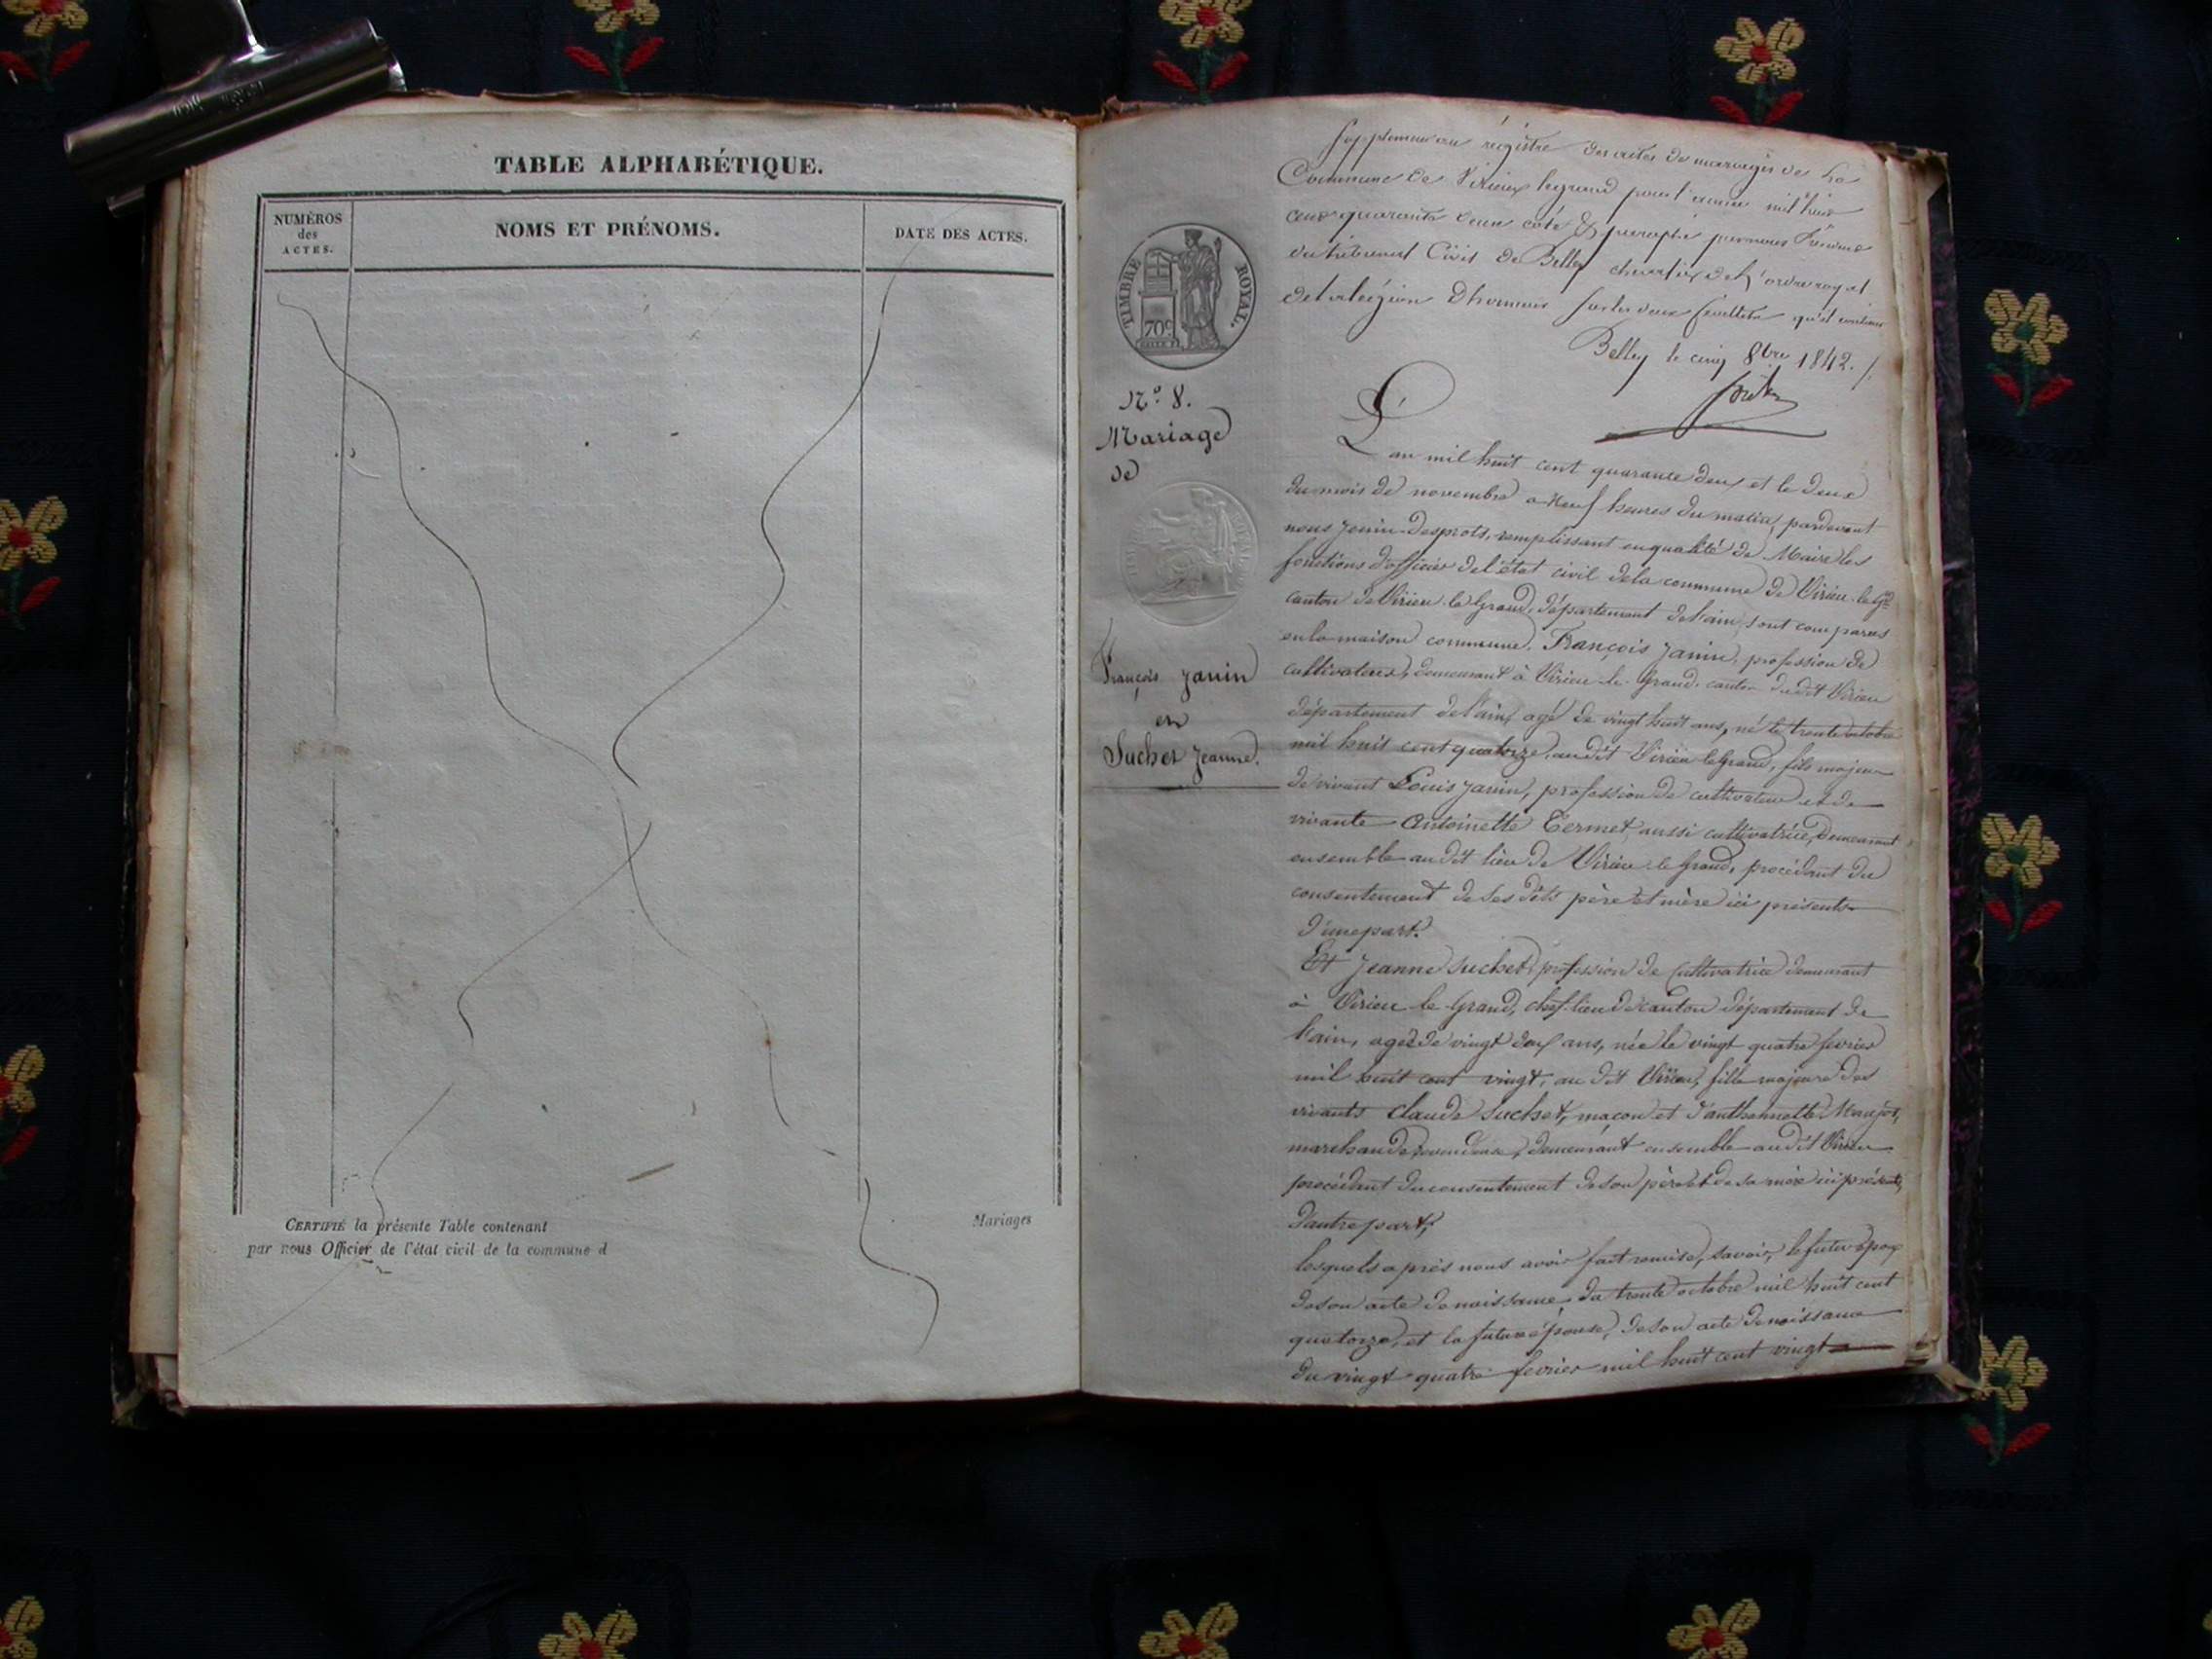 TABLE ALPHABÉTIQUE.
NUMÉROS
des
ACTES.
NOMS ET PRÉNOMS.
DATE DES ACTES.
CERTIFIÉ la présente Table contenant
Mariages
par nous Officier de l'état civil de la commune d
Supplement au régistre des actes de mariages de la
Commune de Virieux legrand pour l'année mil huit
cent quarante deux coté & paraphé par nous
du tribunal Civil de Belley chevalier de L'ordre royal
de la légion D'honneur sur les deux feuillets qu'il contient
Belley le cinq 8bre 1842.
TIMBRE ROYAL.
70c
N.o 8.
Mariage
de
François Janin
en
Suchet Jeanne.
L'an mil huit cent quarante deux et le deux
du mois de novembre a neuf heures du matin, pardevant
nous Jenin-Desprots, remplissant en qualité de Maire les
fonctions d'officier de l'état civil de la commune de Virieu-le-Gd
canton de Virieu-le-Grand, département de l'ain, sont comparus
en la maison commune, François Janin, profession de
cultivateur, demeurant à Virieu-le-Grand, canton du dit Virieu
département de l'ain, agé de vingt huit ans, né le trente octobre
mil huit cent quatorze, au dit Virieu leGrand, fils majeur
de vivant Louis Janin, profession de cultivateur et de
vivante Antoinette Termet, aussi cultivatrice, demeurant
ensemble au dit lieu de Virieu-le-Grand, procédant du
consentement de ses dits père et mère ici présents
d'une part.
Et Jeanne Suchet, profession de cultivatrice demeurant
à Virieu-le-Grand, chef-lieu de canton département de
l'ain, agée de vingt deux ans, née le vingt quatre fevrier
mil huit cent vingt, au dit Virieu, fille majeure des
vivants Claude Suchet, maçon et d'anthonnette
marchande, demeurant ensemble au dit Virieu
procédant du consentement de son père et de sa mère ici présents,
d'autre part,
lesquels après nous avoir fait remise, savoir, le futur époux
de son acte de naissance du trente octobre mil huit cent
quatorze, et la future épouse, de son acte de naissance
du vingt quatre fevrier mil huit cent vingt